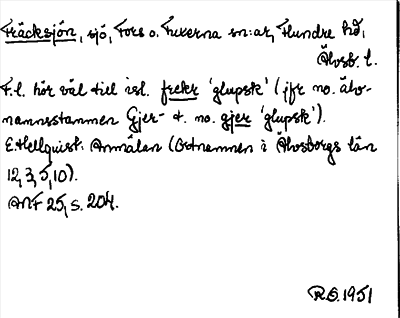 Fräcksjön, sjö, Fors o. Fuxerna sn:ar, Flundre hd,
Älvsb. l.
F.l. hör väl till isl. frekr 'glupsk' (jfr no. älv-
namnsstammen Gjer- t. no. gjer 'glupsk').
E. Hellquist. Anmälan (Ortnamnen i Älvsborgs län
12, 3, 5, 10).
ANF 25, s. 204.
R.O. 1951